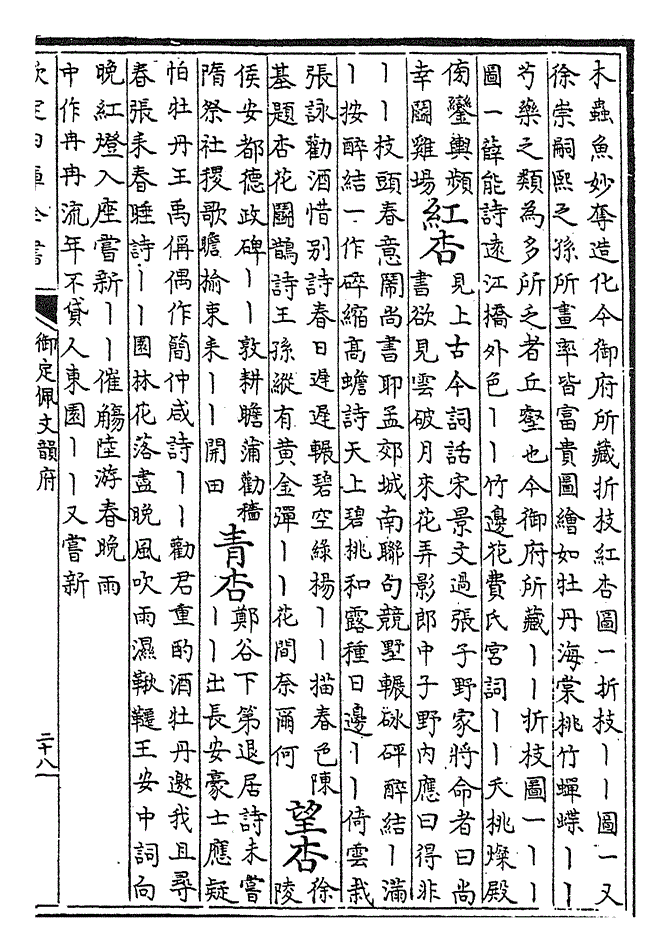 木蟲魚妙奪造化今御府所藏折枝紅杏圖一折枝丨丨圖一又
徐崇嗣熙之孫所畫率皆富貴圖繪如牡丹海棠桃竹蟬蝶丨丨
芍藥之類為多所乏者丘壑也今御府所藏丨丨折枝圖一丨丨
圖一薛能詩遠江橋外色丨丨竹邊花費氏宮詞丨丨夭桃燦殿
傍鑾輿頻
幸鬭雞場
紅杏
見上古今詞話宋景文過張子野家將命者曰尚
書欲見雲破月來花弄影郎中子野內應曰得非
丨丨枝頭春意鬧尚書耶孟郊城南聯句競墅輾砯砰醉結丨滿
丨按醉結一作碎縮高蟾詩天上碧桃和露種日邊丨丨倚雲栽
張詠勸酒惜別詩春日遲遲輾碧空綠楊丨丨描春色陳
基題杏花鬭鵲詩王孫縱有黃金彈丨丨花間奈爾何
望杏
徐
陵
侯安都德政碑丨丨敦耕瞻蒲勸穡
隋祭社稷歌瞻榆束耒丨丨開田
青杏
鄭谷下第退居詩未嘗
丨丨出長安豪士應疑
怕牡丹王禹偁偶作簡仲咸詩丨丨勸君重酌酒牡丹邀我且尋
春張耒春睡詩丨丨園林花落盡晚風吹雨濕鞦韆王安中詞向
晚紅燈入座嘗新丨丨催觴陸游春晚雨
中作冉冉流年不貸人東園丨丨又嘗新
欽定四庫全書
御定佩文韻府
二十八